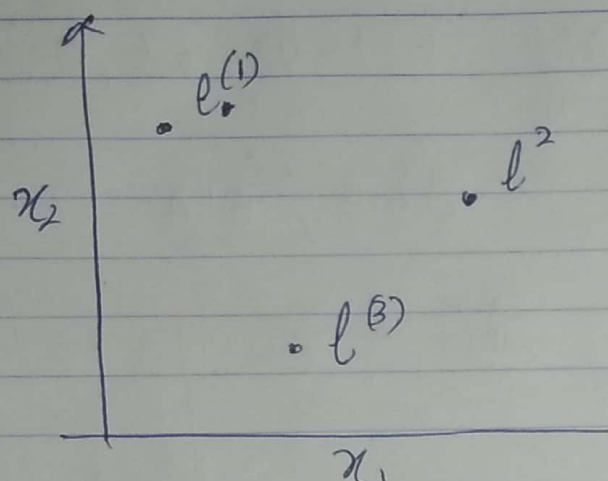 l^(1)
l^2
x_2
l^(3)
x_1